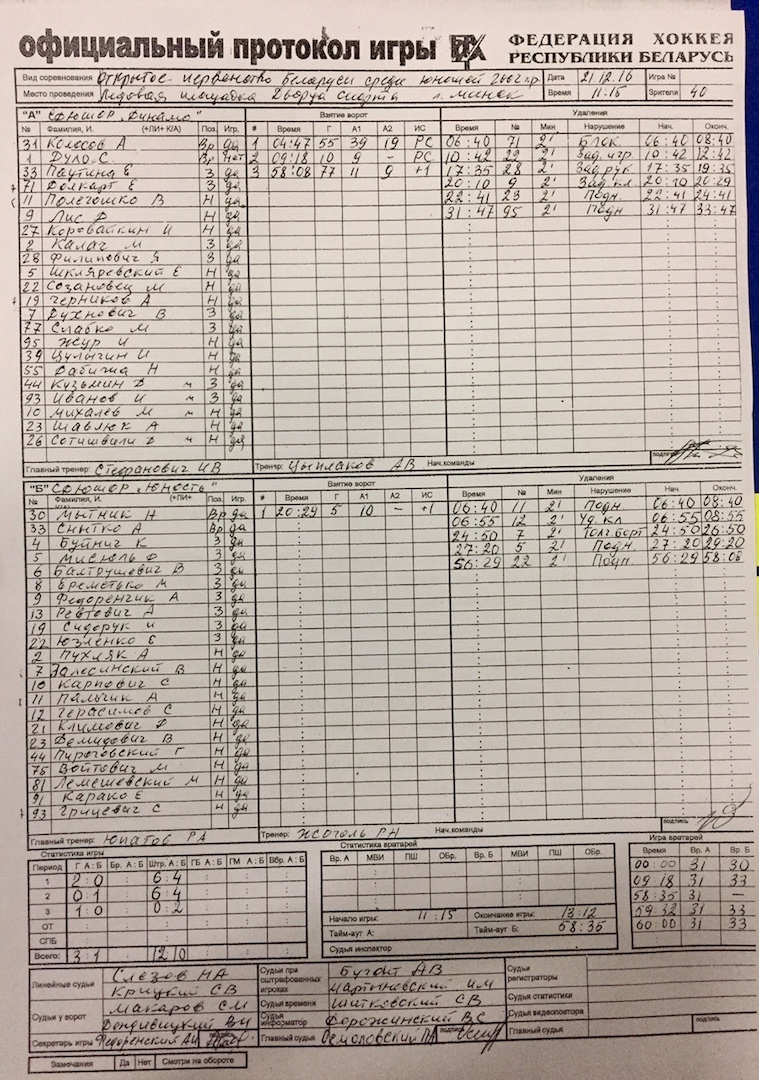 официальный протокол игры ФЕДЕРАЦИЯ ХОККЕЯ РЕСПУБЛИКИ БЕЛАРУСЬ
Вид соревнования Открытое первенство Беларуси среди юношей 2002 г.р. Дата 21.12.16 Игра №
Место проведения Ледовая площадка Дворца спорта г. Минск Время 11:15 Зрители 40
"А" СДЮШОР „Динамо“ Взятие ворот Удаления
№ Фамилия, И. (+ЛИ+ К/А) Поз. Игр. # Время Г А1 А2 ИС Время № Мин Нарушение Нач. Оконч.
31 Колосов А Вр да 1 04:47 55 39 19 РС 06:40 71 2' Блок 06:40 08:40
1 Дуло С. Вр нет 2 09:18 10 9 - РС 10:42 22 2' Зад.игр. 10:42 12:42
33 Паутина Е З да 3 58:08 77 11 9 +1 17:35 28 2' Зад.рук 17:35 19:35
71 Долкарт Е З да 20:10 9 2' Зад кл 20:10 20:29
11 Полегошко В Н да 22:41 23 2' Подн. 22:41 24:41
9 Лис Д Н да 31:47 95 2' Подн 31:47 33:47
27 Короваткин И Н да
2 Калач М З да
28 Филипович Я З да
5 Шкляревский Е Н да
22 Созановец М Н да
19 Черников А Н да
7 Духнович В З да
77 Слабко М З да
95 Жур И Н да
39 Цулыгин И Н да
55 Бабича Н Н да
44 Кузьмин Д м З да
93 Иванов И м З да
10 Михалев М м Н да
23 Шавлюк А Н да
26 Сотишвили Д м Н да
Главный тренер: Стефанович ИВ Тренер: Цыплаков АВ Нач.команды подпись
"Б" СДЮШОР „Юность“ Взятие ворот Удаления
№ Фамилия, И. (+ЛИ+ Поз. Игр. # Время Г А1 А2 ИС Время № Мин Нарушение Нач. Оконч.
30 Мытник Н Вр да 1 20:29 5 10 - +1 06:40 11 2' Подн 06:40 08:40
33 Снытко А Вр да 06:55 12 2' Уд. кл 06:55 08:55
4 Буйнич К З да 24:50 7 2' Толч.борт 24:50 26:50
5 Мисюль Д З да 27:20 5 2' Подн. 27:20 29:20
6 Балтрушевич В З да 56:29 22 2' Подн. 56:29 58:08
8 Еременько М З да
9 Федоренчик А З да
13 Ревтович А З да
19 Сидорук И З да
22 Юзленко Е З да
2 Пухляк А Н да
7 Залесинский В Н да
10 Карпович С Н да
11 Пальчик А Н да
12 Герасимов С Н да
21 Климович Д Н да
23 Демидович В Н да
44 Пироговский Г Н да
75 Войтович М Н да
81 Лемешевский М Н да
91 Карако Е Н да
93 Грицевич С Н да
Главный тренер: Юпатов РА Тренер: Жоголь РН Нач.команды подпись
Статистика игры Статистика вратарей Игра вратарей
Период Г А : Б Бр. А : Б Штр. А : Б ГБ А : Б ГМ А : Б Вбр. А : Б Вр. А МВИ ПШ ОБр. Вр. Б МВИ ПШ ОБр. Время Вр. А Вр. Б
1 2:0 6:4 00:00 31 30
2 0:1 6:4 09:18 31 33
3 1:0 0:2 58:35 31 -
ОТ Начало игры: 11:15 Окончание игры: 13:12 59:32 31 33
СПБ Тайм-аут А: Тайм-аут Б: 58:35 60:00 31 33
Всего: 3:1 12:10 Судья инспектор
Линейные судьи Слезов НА Судьи при оштрафованных игроках Бугонт АВ Судьи регистраторы
Крицкий СВ Мартыневский ИМ
Судьи у ворот Макаров СМ Судья времени Шитковский СВ Судья статистики
Судья информатор Дорожинский ВС Судья видеоповтора
Секретарь игры Федоренский АИ Главный судья подпись Главный судья подпись
Замечания Да Нет Смотри на обороте